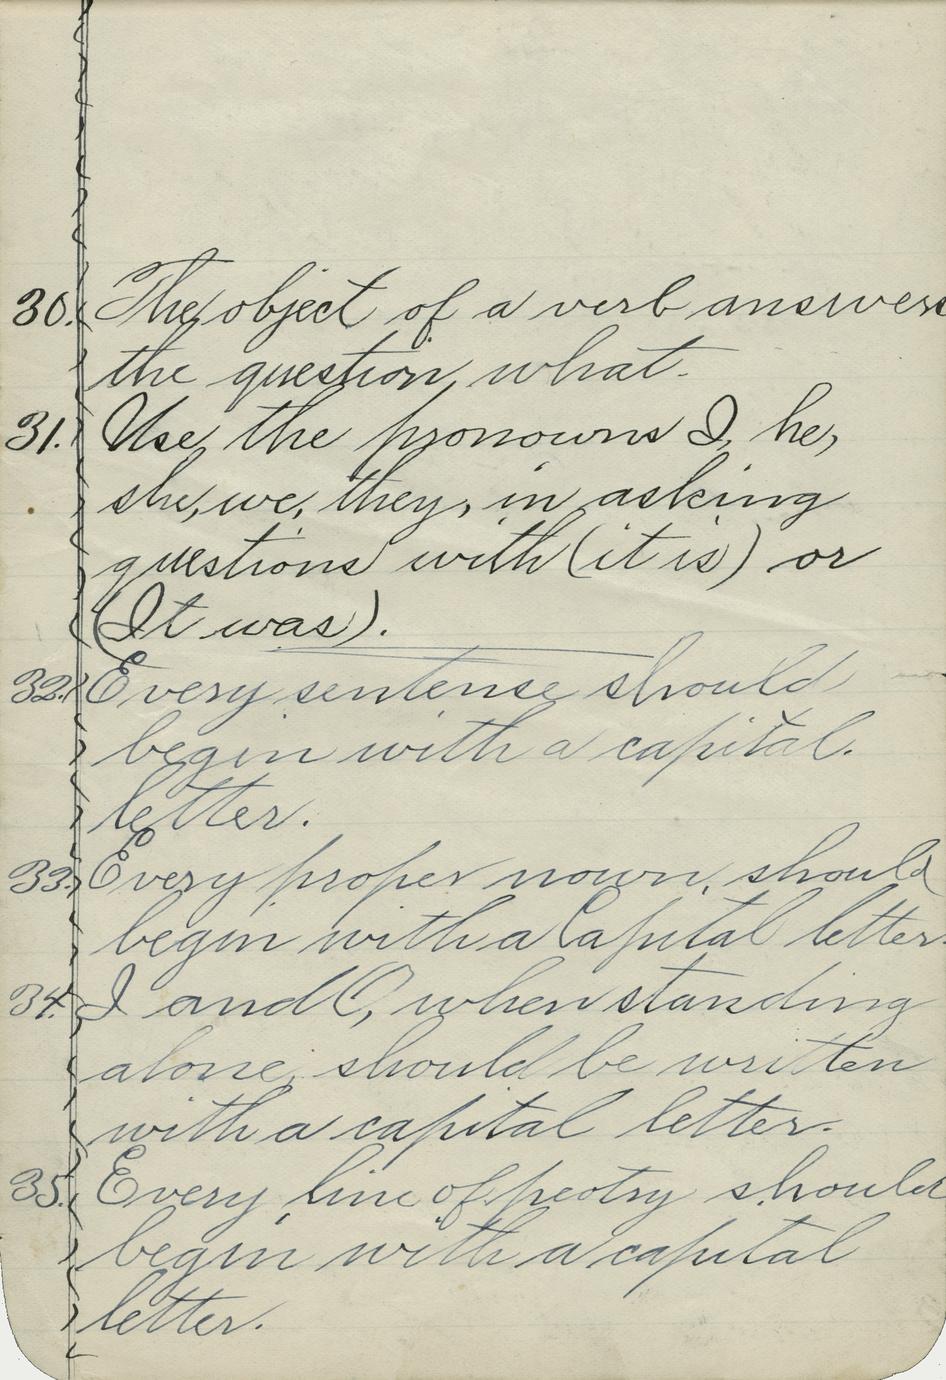 30. The object of a verb answers
the question what.
31. Use the pronouns I, he,
she, we, they, in asking
questions with (it is) or
(It was).
32. Every sentense should
begin with a capital.
letter.
33. Every proper noun, should
begin with a Capital letter.
34. I and O, when standing
alone, should be written
with a capital letter.
35. Every line of peotry should
begin with a capital
letter.